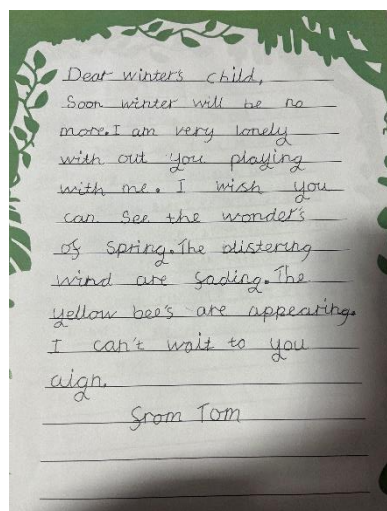 Dear winter's child,
Soon winter will be no
more. I am very lonely
with out you playing
with me. I wish you
can see the wonder's
of spring. The blistering
wind are fading. The
yellow bee's are appearing.
I can't wait to you
aign.
from Tom